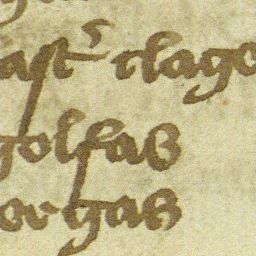 aſt᷒ clage
golfas
orgas